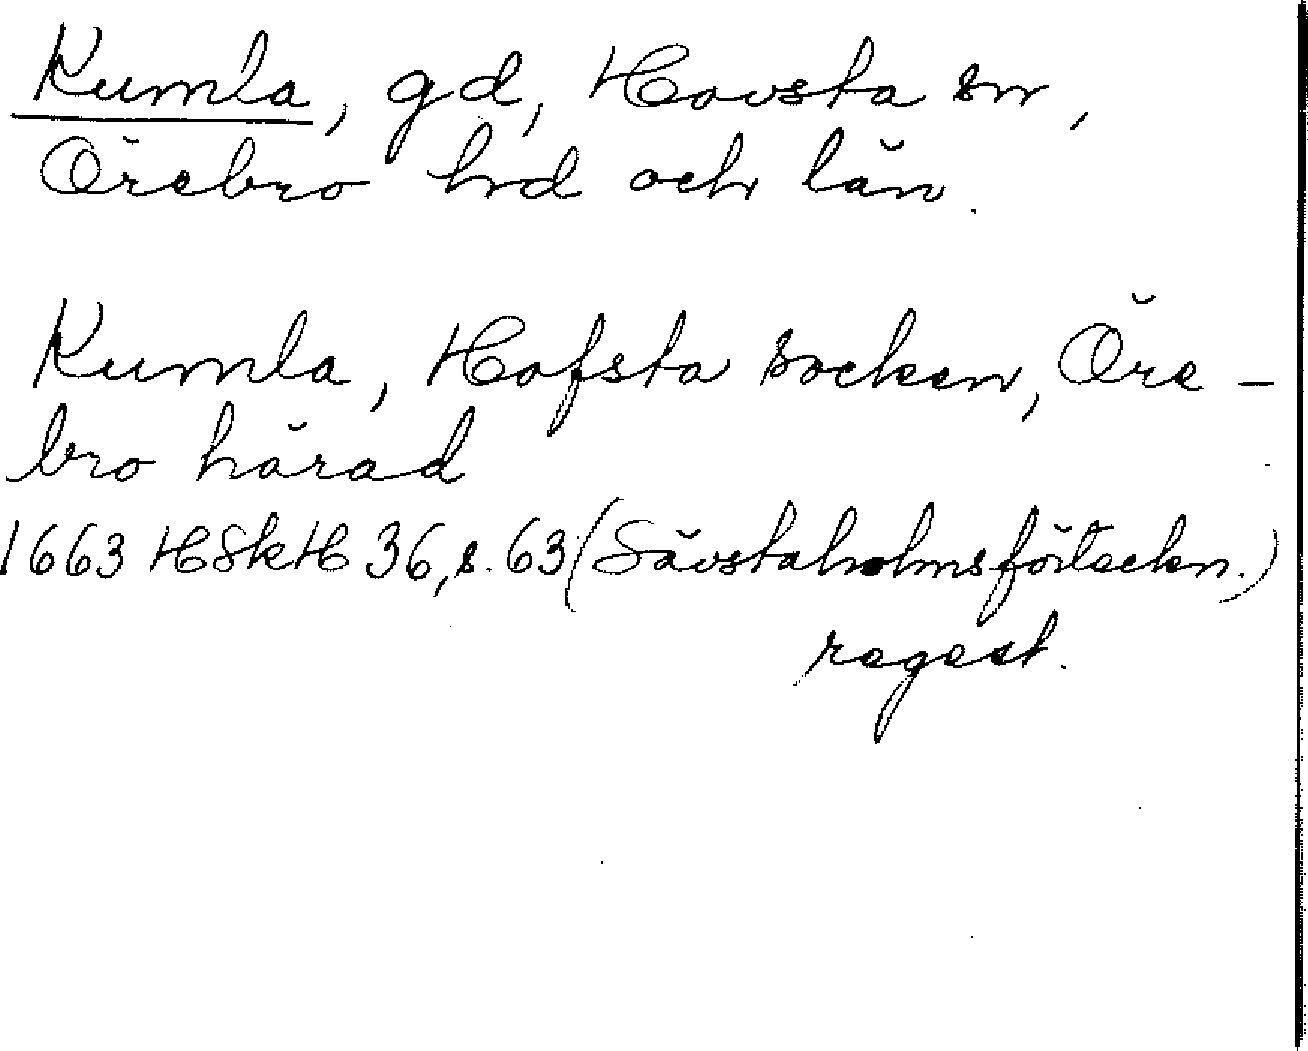 Kumla, gd, Hovsta sn,
Örebro hrd och län.
Kumla, Hofsta socken, Öre-
bro härad
1663 HSkH 36, s. 63 (Sävstaholmsförteckn.)
regest.